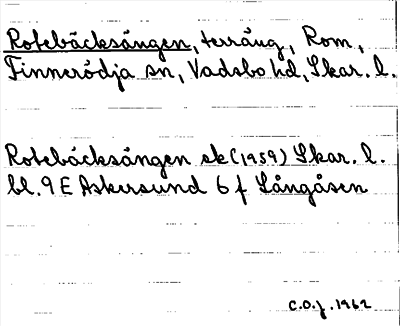 Rotebäcksängen, terräng, Rom,
Finnerödja sn, Vadsbo hd, Skar. l.
Rotebäcksängen ek (1959) Skar. l.
bl. 9 E Askersund 6 f Långåsen
C.O.J. 1962